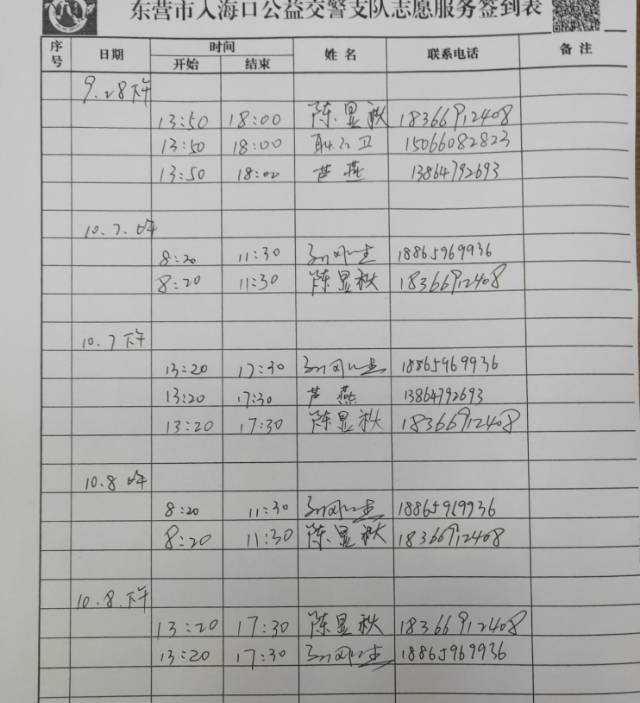 东营市入海口公益交警支队志愿服务签到表
序号 日期 时间 姓名 联系电话 备注
开始 结束
9.28下午
13:50 18:00 陈显秋 18366912408
13:50 18:00 耿 卫 15066082823
13:50 18:00 芦燕 13864792693
10.7.上午
8:20 11:30 18865969936
8:20 11:30 陈显秋 18366912408
10.7下午
13:20 17:30 18865969936
13:20 17:30 芦燕 13864792693
13:20 17:30 陈显秋 18366912408
10.8上午
8:20 11:30 18865969936
8:20 11:30 陈显秋 18366912408
10.8.下午
13:20 17:30 陈显秋 18366912408
13:20 17:30 18865969936